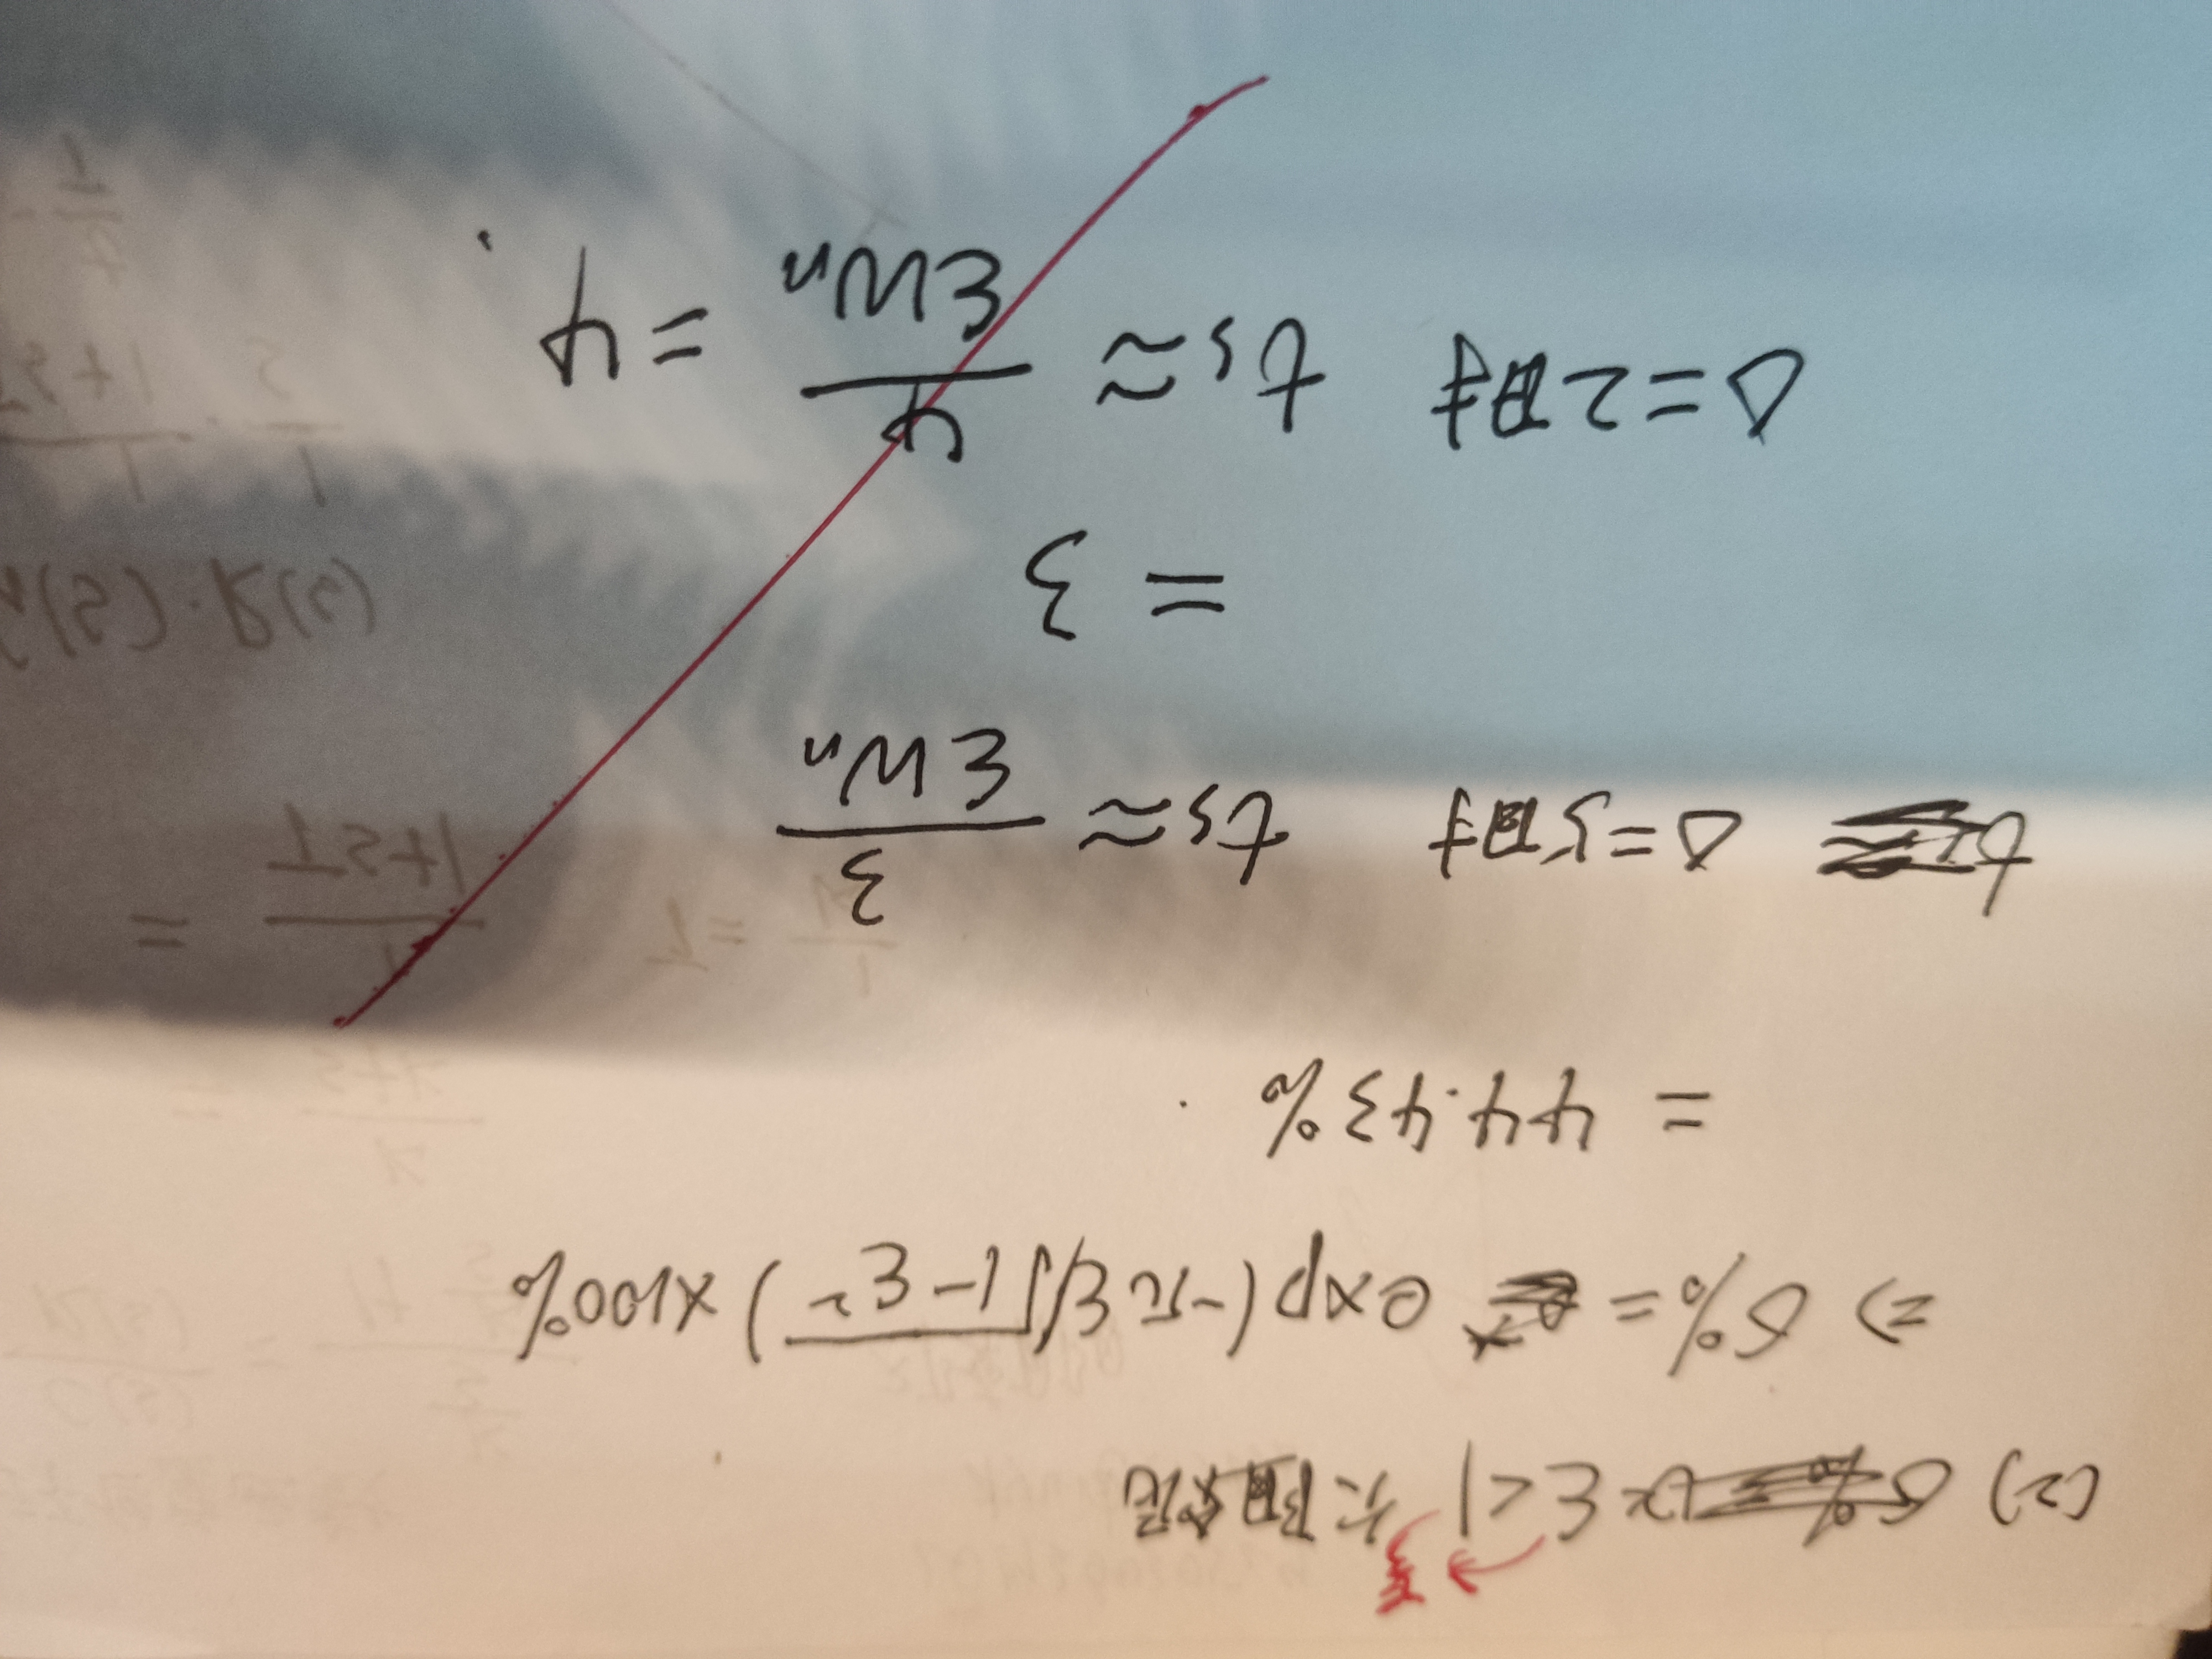 (2) σ% ξ<1 欠阻尼
⇒ σ% = exp(-πξ/√1-ξ²)×100%
= 44.43%
Δ=5时 ts ≈ 3/ξWn
= 3
Δ=2时 ts ≈ 4/ξWn = 4.